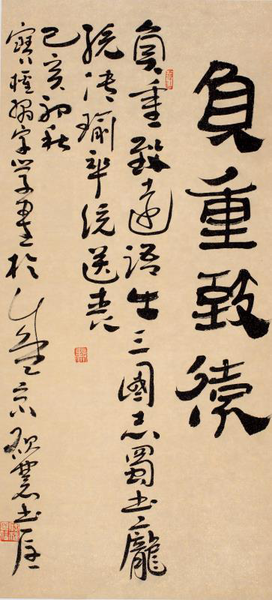 負重致遠
負重致遠語出三國志蜀書龐
統傳瑜卒統送喪
己亥初秋
寶 字學書於 京 書屋